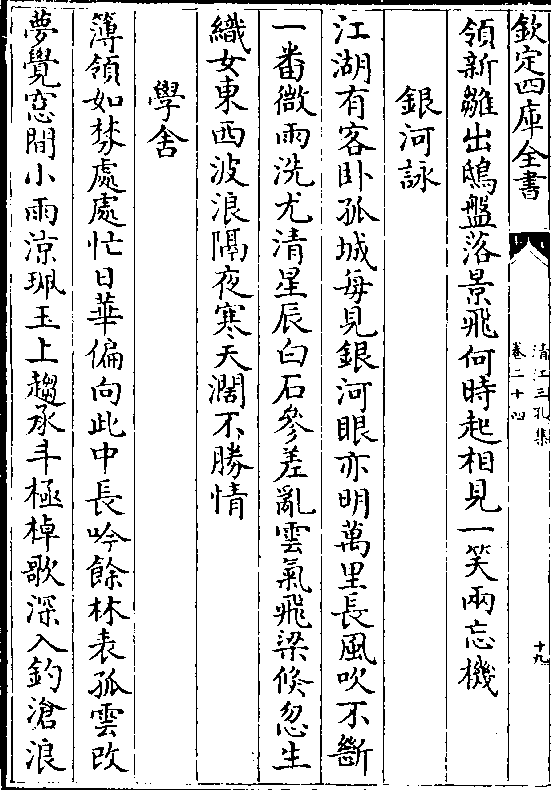 欽定四庫全書
清江三孔集
卷二十四
十九
領新雛出鴟盤落景飛何時起相見一笑兩忘機
銀河詠
江湖有客卧孤城每見銀河眼亦明萬里長風吹不斷
一番微雨洗尤清星辰白石參差亂雲氣飛梁倐忽生
織女東西波浪隔夜寒天濶不勝情
學舍
簿領如棼處處忙日華偏向此中長吟餘林表孤雲改
夢覺窓間小雨涼珮玉上趨承斗極棹歌深入釣滄浪